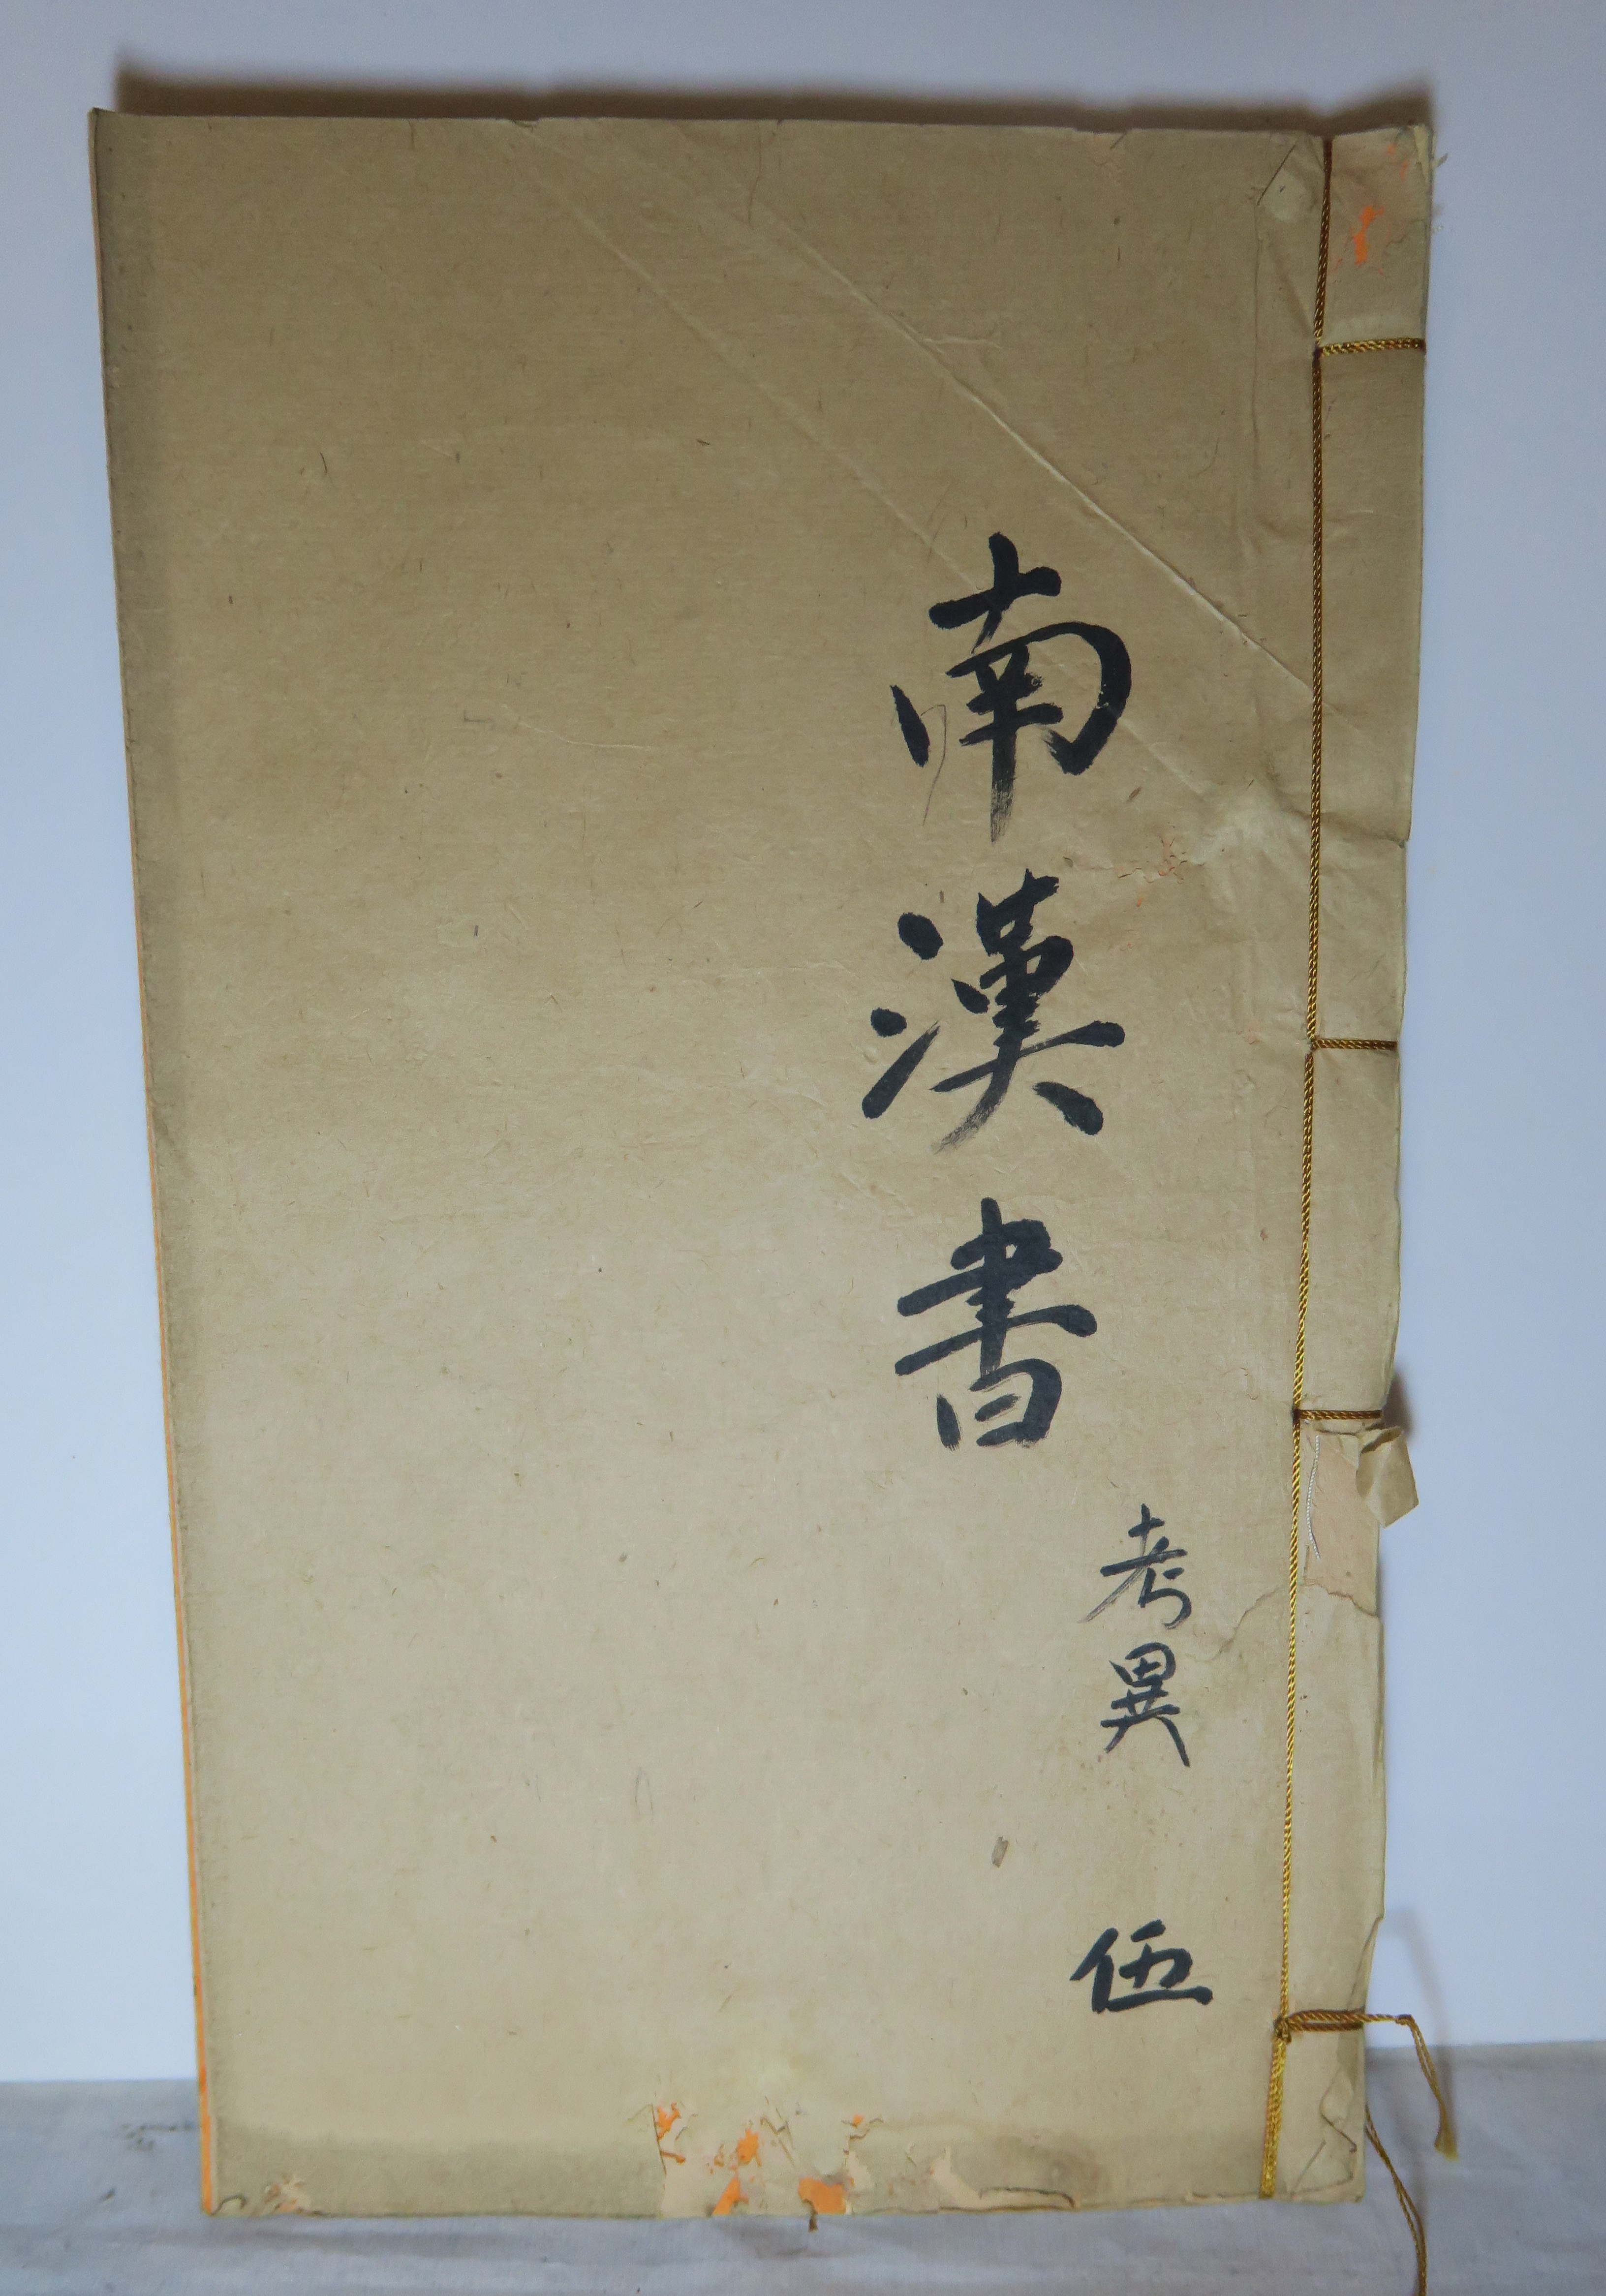 南漢書
考異
伍